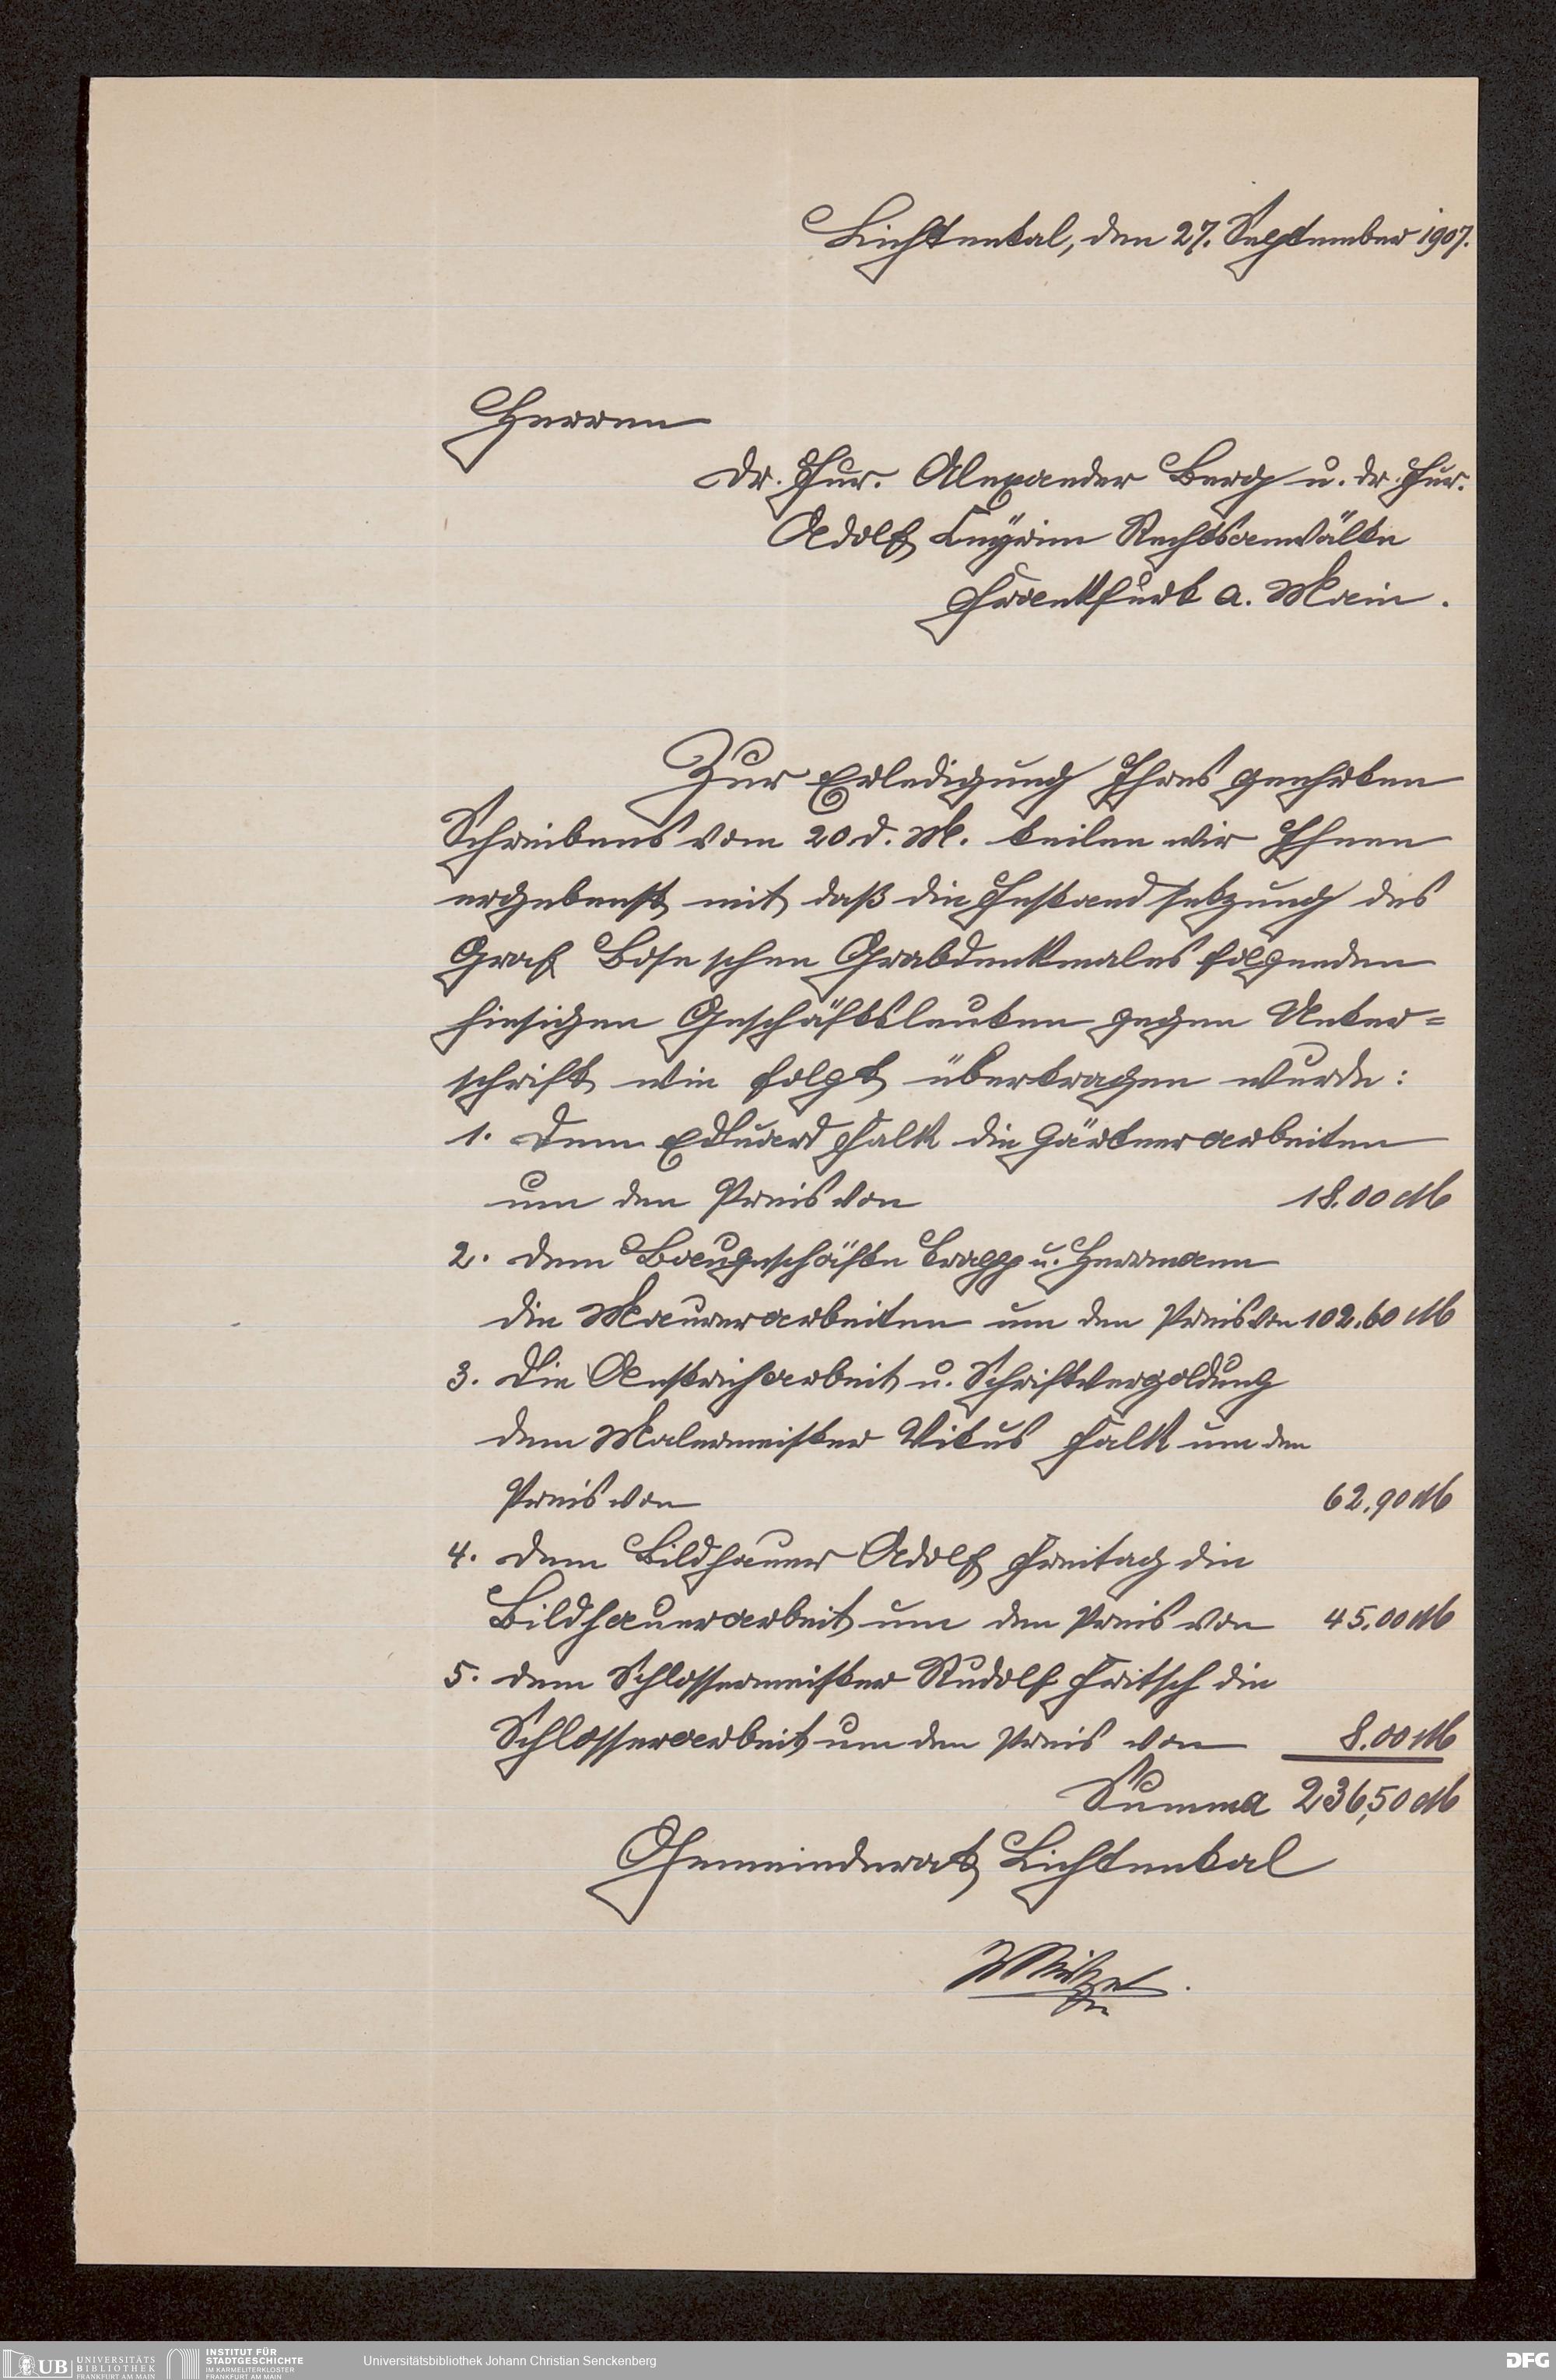 Lichtental, den 27. September 1907.
Herren
Dr. Jur. Alexander Berg u. Dr. Jur.
Adolf Leyrim Rechtsanwälte
Frankfurt a. Main.
Zur Erledigung Ihres geehrten
Schreibens vom 20. d. M. teilen wir Ihnen
ergebenst mit daß die Instandsetzung des
Graf Bose'schen Grabdenkmales folgenden
hiesigen Geschäftsleuten gegen Unter=
schrift wie folgt übertragen wurde:
1. Dem Eduard Falk die Gärtnerarbeiten
um den Preis von 18.00 M
2. dem Baugeschäfte Trapp u. Herrmann
die Maurerarbeiten um den Preis von 102.60 M
3. Die Anstricharbeit u. Schriftvergoldung
dem Malermeister Vitus Falk um den
Preis von 62.90 M
4. dem Bildhauer Adolf Freitag die
Bildhauerarbeit um den Preis von 45.00 M
5. dem Schlossermeister Rudolf Fritsch die
Schlosserarbeit um den Preis von 8.00 M
Summa 236,50 M
Gemeinderat Lichtental
UB UNIVERSITÄTS
BIBLIOTHEK
FRANKFURT AM MAIN
INSTITUT FÜR
STADTGESCHICHTE
IM KARMELITERKLOSTER
FRANKFURT AM MAIN
Universitätsbibliothek Johann Christian Senckenberg
DFG